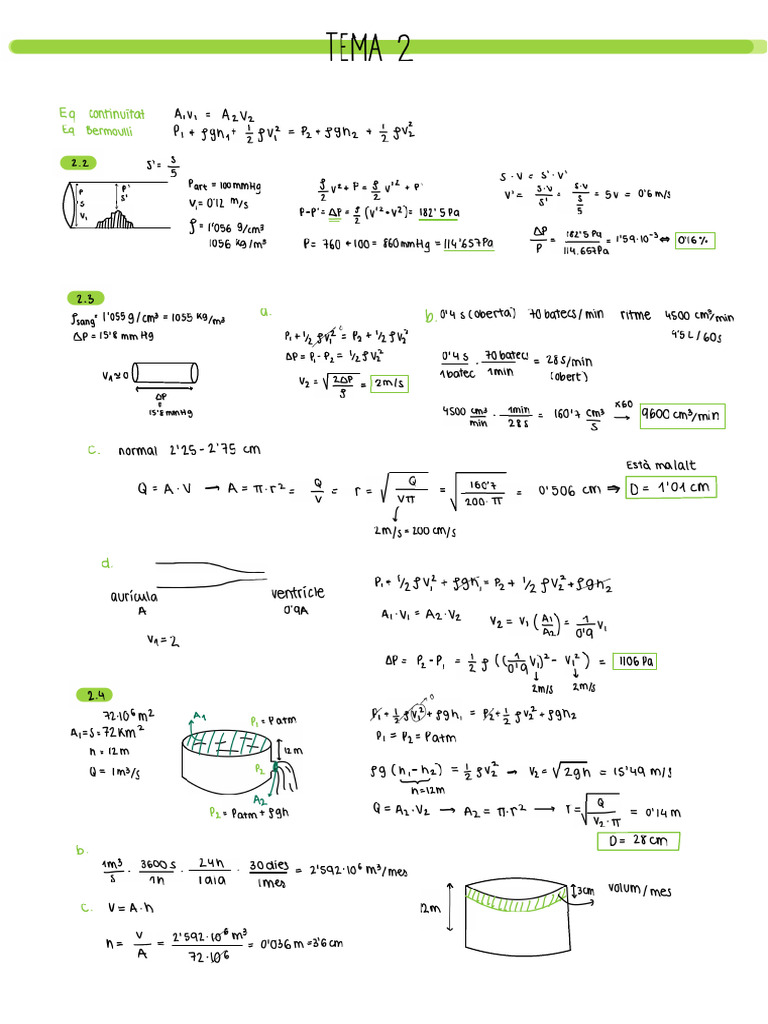 TEMA 2
Eq continuïtat A₁v₁ = A₂v₂
Eq Bermoulli P₁ + ρgh₁ + 1/2 ρv₁² = P₂ + ρgh₂ + 1/2 ρv₂²
2.2
S' = S/5
P S V₁ P' S'
Part = 100 mmHg
V₁ = 0'12 m/s
ρ = 1'056 g/cm³
1056 kg/m³
ρ/2 v² + P = ρ/2 v'² + P'
P - P' = ΔP = ρ/2 (v'² + v²) = 182'5 Pa
P = 760 + 100 = 860 mmHg = 114'657 Pa
S · V = S' · V'
V' = S·V/S' = S·V/(S/5) = 5V = 0'6 m/s
ΔP/P = 182'5 Pa/114.657 Pa = 1'59·10⁻³ ⇔ 0'16%
2.3
ρsang = 1'055 g/cm³ = 1055 kg/m³
ΔP = 15'8 mm Hg
V₁ ≈ 0
ΔP = 15'8 mmHg
a.
P₁ + 1/2 ρV₁² = P₂ + 1/2 ρV₂²
0
ΔP = P₁ - P₂ = 1/2 ρV₂²
V₂ = √(2ΔP/ρ) = 2m/s
b. 0'4 s (oberta) 70 batecs/min ritme 4500 cm³/min
4'5 L / 60s
0'4 s/1 batec · 70 batecs/1 min = 28 s/min (obert)
4500 cm³/min · 1 min/28 s = 160'7 cm³/s →×60 9600 cm³/min
c. normal 2'25 - 2'75 cm
Q = A · V → A = π·r² = Q/V = r = √(Q/Vπ) = √(160'7/200·π) = 0'506 cm ⇒ D = 1'01 cm
Està malalt
2m/s = 200 cm/s
d.
aurícula A
ventrícle 0'9A
V₁ = 2
P₁ + 1/2 ρV₁² + ρgh₁ = P₂ + 1/2 ρV₂² + ρgh₂
A₁·V₁ = A₂·V₂ V₂ = V₁ (A₁/A₂) = 1/0'9 V₁
ΔP = P₂ - P₁ = 1/2 ρ ((1/0'9 V₁)² - V₁²) = 1106 Pa
2m/s 2m/s
2.4
72·10⁶ m²
A₁ = S = 72 Km²
h = 12 m
Q = 1m³/s
A₁
P₁ = Patm
12 m
P₂
A₂
P₂ = Patm + ρgh
P₁ + 1/2 ρV₁² + ρgh₁ = P₂ + 1/2 ρV₂² + ρgh₂
0
P₁ = P₂ = Patm
ρg (h₁ - h₂) = 1/2 ρV₂² → V₂ = √2gh = 15'49 m/s
h = 12m
Q = A₂·V₂ → A₂ = π·r² → r = √(Q/V₂·π) = 0'14 m
D = 28 cm
b.
1m³/s · 3600 s/1h · 24h/1 dia · 30 dies/1 mes = 2'592·10⁶ m³/mes
c. V = A·h
h = V/A = 2'592·10⁶ m³/72·10⁶ = 0'036 m = 3'6 cm
12m
3cm
volum / mes